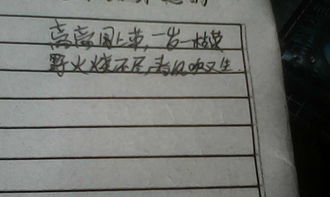 离离原上草,一岁一枯荣
野火烧不尽,春风吹又生